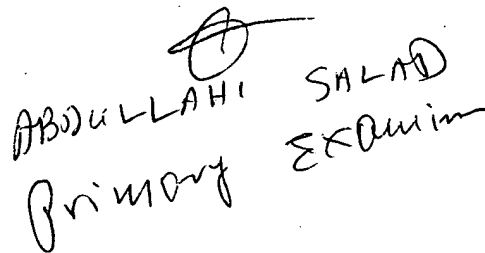 ABDULLAHI SALAD
Primary Examin